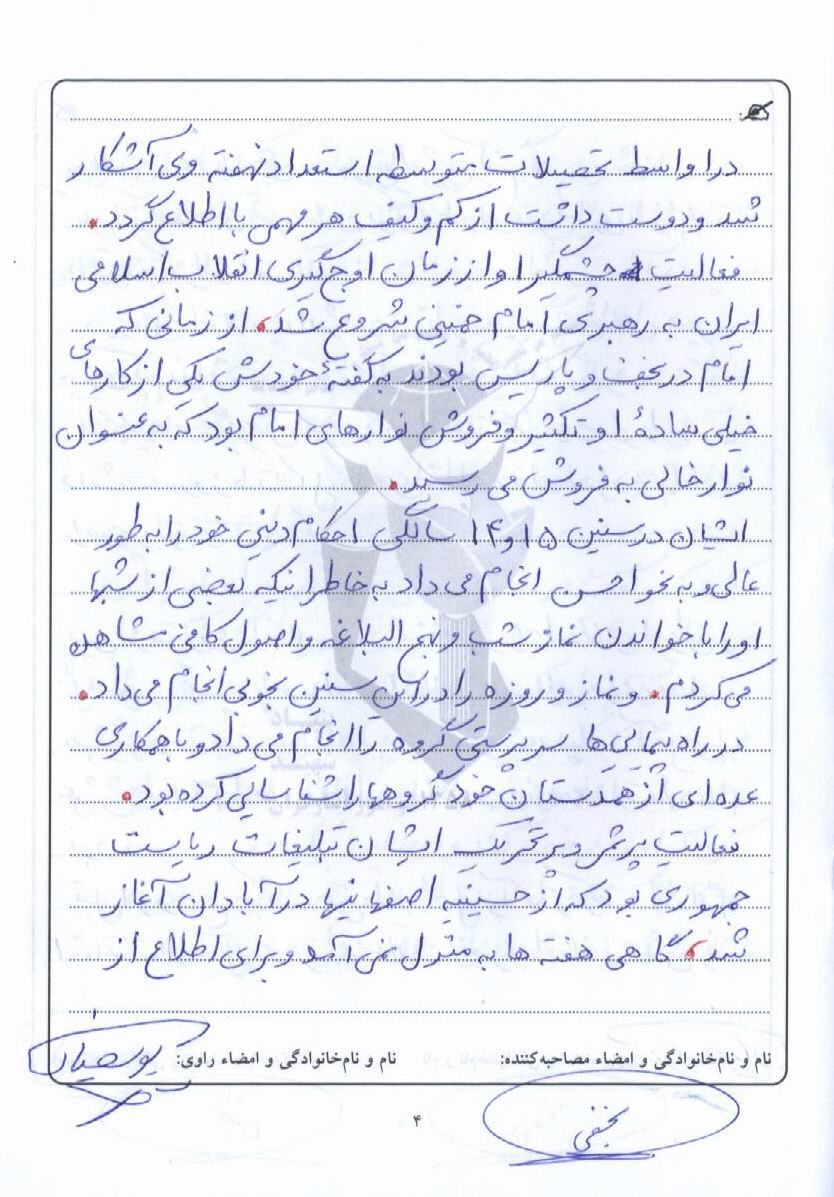 در اواسط تحصیلات متوسطه استعداد نهفته وی آشکار
شد و دوست داشت از کم و کیف هر مهمی با اطلاع گردد.
فعالیت چشمگیر او از زمان اوج گیری انقلاب اسلامی
ایران به رهبری امام خمینی شروع شد، از زمانی که
امام در نجف و پاریس بودند به گفتهٔ خودش یکی از کارهای
خیلی سادهٔ او تکثیر و فروش نوارهای امام بود که به عنوان
نوار خالی به فروش می رسید.
ایشان در سنین ۱۵ و ۱۴ سالگی احکام دینی خود را به طور
عالی و به نحو احسن انجام می داد به خاطر اینکه بعضی از شبها
او را با خواندن نماز شب و نهج البلاغه و اصول کافی مشاهده
می کردم. و نماز و روزه را در این سنین بخوبی انجام می داد.
در راه پیمایی ها سرپرستی گروه را انجام می داد و با همکاری
عده ای از همدستان خود گروهها را شناسایی کرده بود.
فعالیت پرثمر و پرتحریک ایشان تبلیغات ریاست
جمهوری بود که از حسینیه اصفهانیها در آبادان آغاز
شد، گاهی هفته ها به منزل نمی آمد و برای اطلاع از
نام و نام‌خانوادگی و امضاء مصاحبه‌کننده: نام و نام‌خانوادگی و امضاء راوی: یوسفیان
نجفی
۴